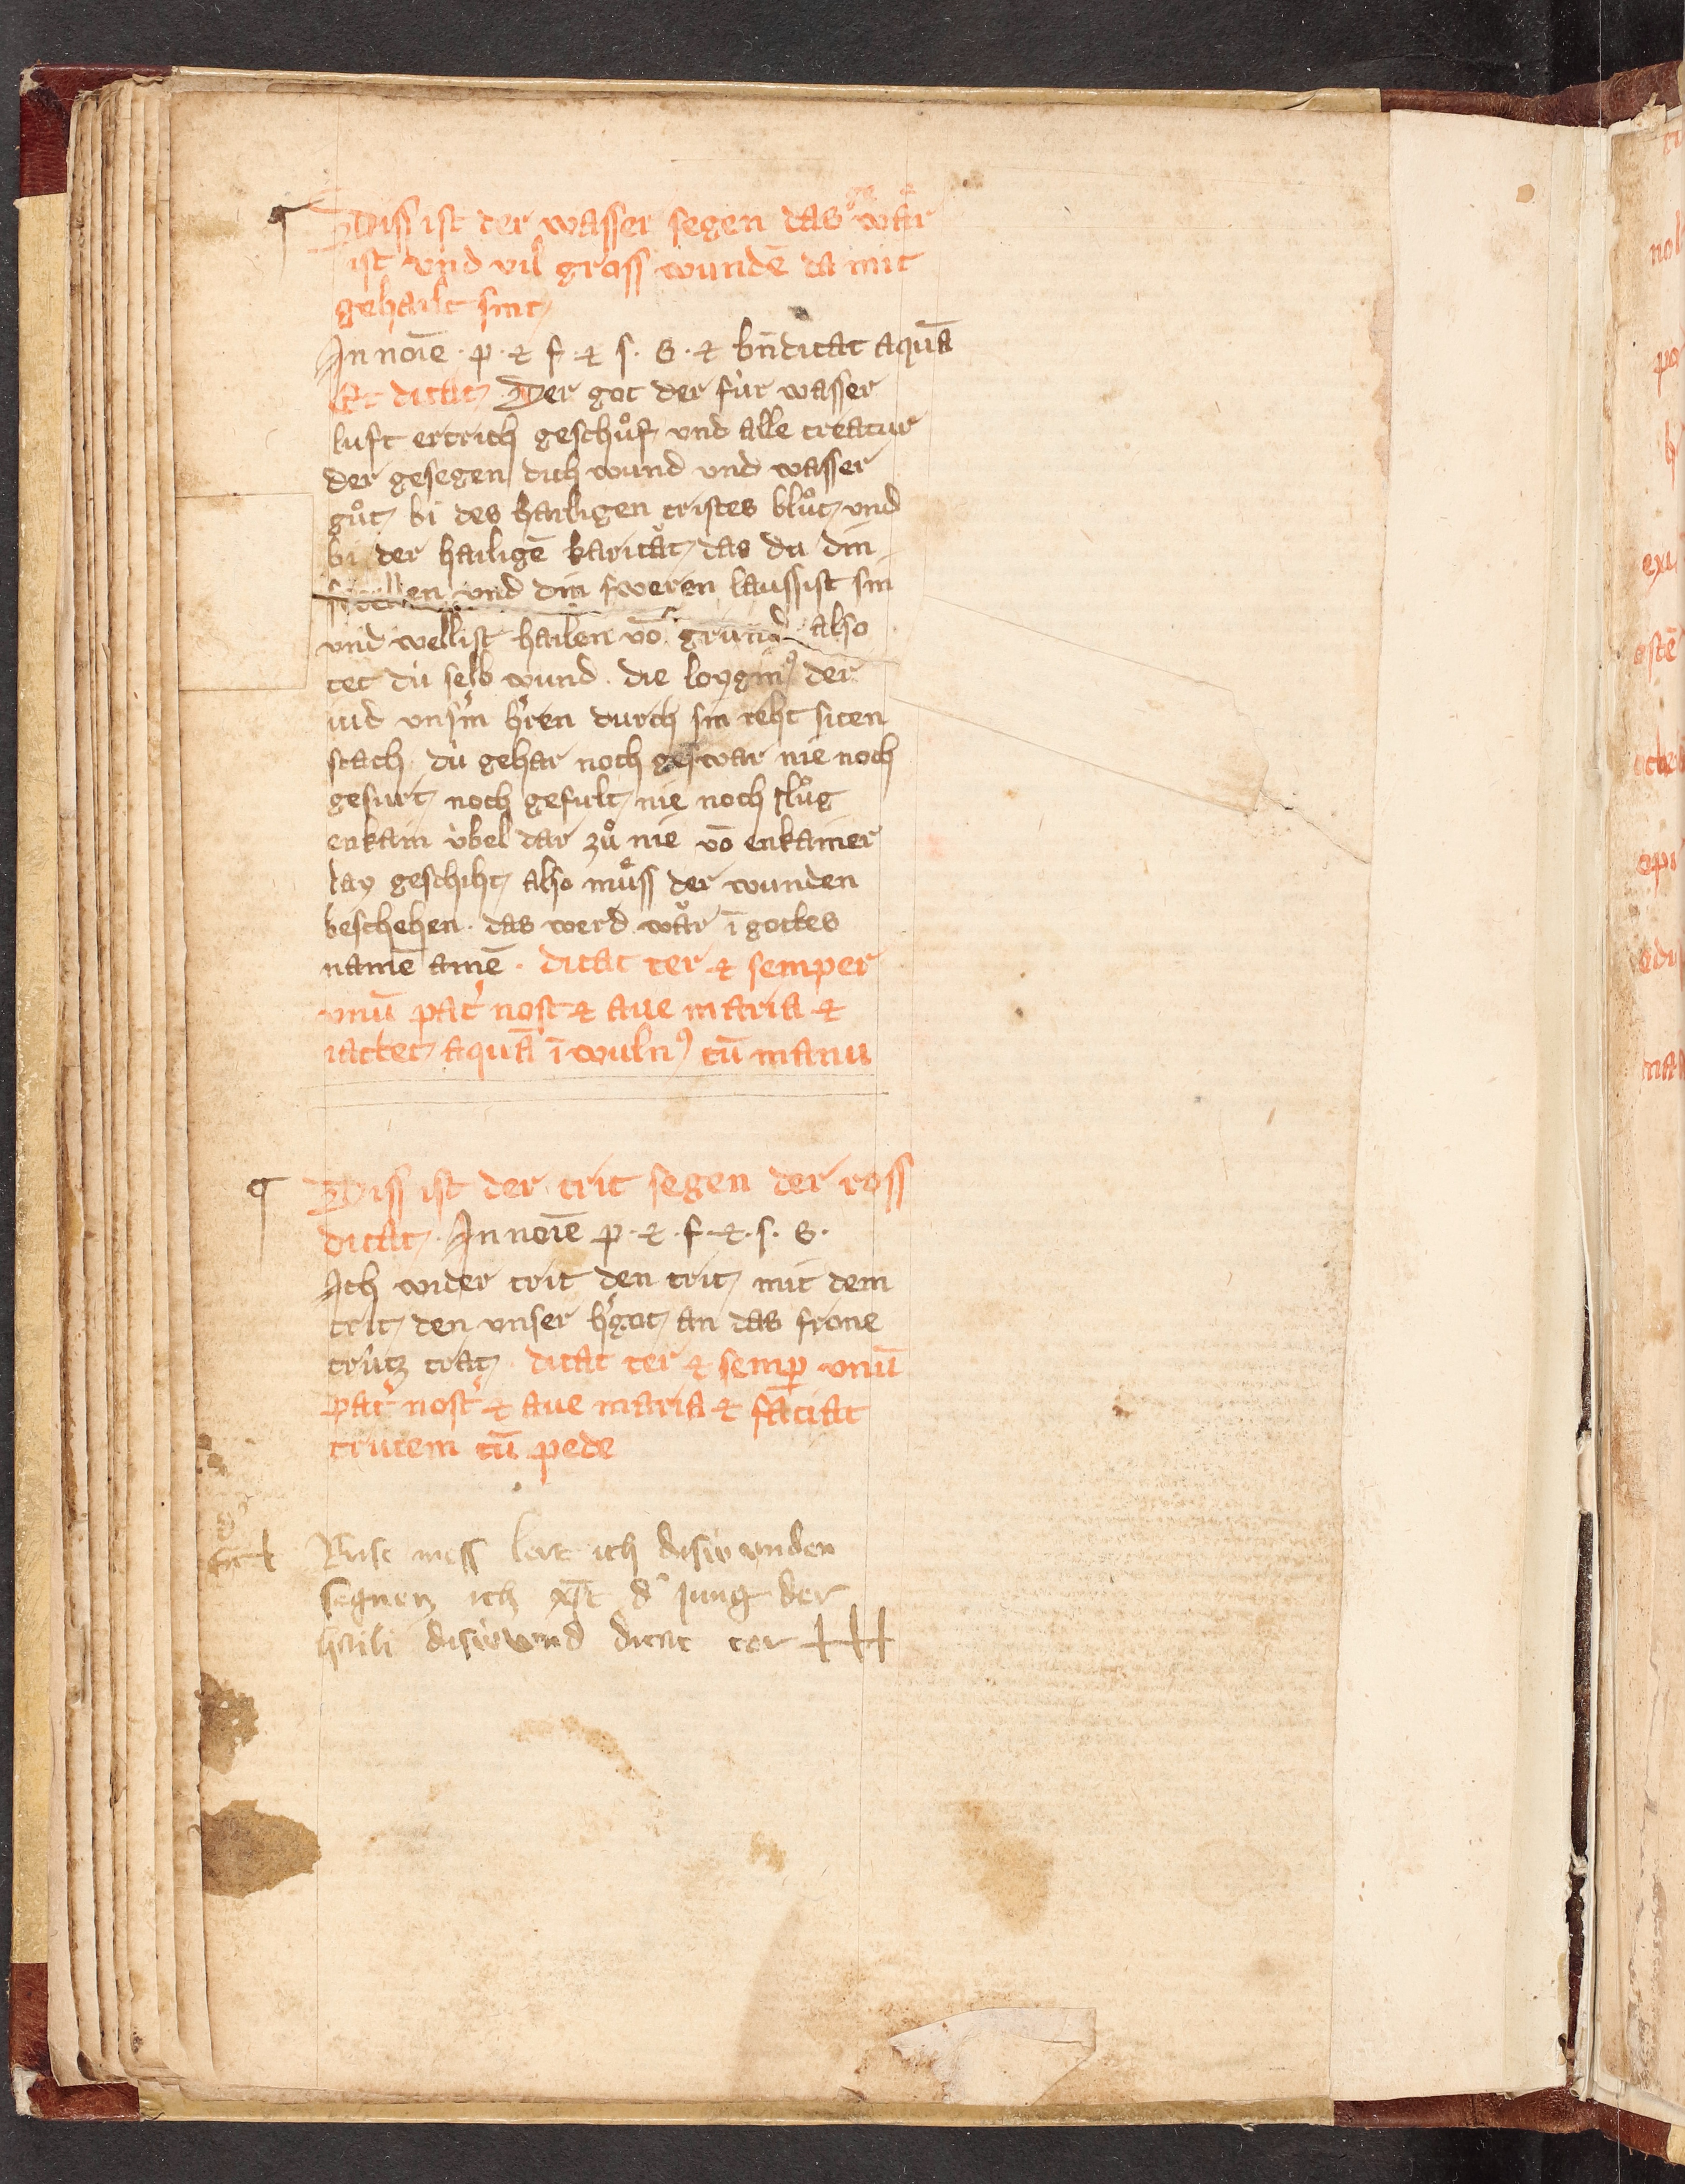 Diss ist der wasser segen das ge wår
ist vnd vil gross wundē da mit
gehailt sint
In noīe · p · & f · & s · s · & bn̄dicat aquā
Et dicat Der got der für wasser
luft ertrich geschůf vnd alle creatur
der gesegen dich wund vnd wasser
gůt bi des hailigen cristes blůt vnd
bi der hailigē karitåt das du din
en vnd din sweren laussist sin
vnd wellist hailen vō grund also
tet dü selb wund · die loygin9 der
iud vnsm̉ hr̉en durch sin reht siten
stach · dü gehar noch geswar nie noch
gesurt noch gefult nie noch slůg
enkain übel dar zů nie vō enkainer
lay geschiht also můss der wunden
beschehen · das werd wår ī gottes
namē amē · dicat ter & semper
vnū pat̉ nost & aue maria &
iactet aquā ī wuln9 cū manu
Diss ist der trit segen der ross
dicat · In noīe p · & · f · & · s · s ·
Ich wider trit den trit mit dem
trit den vnser hr̉got an das frone
crütz trat · dicat ter & semp̱ vnū
Pat̉ nost̉ & aue maria & faciat
crucem cū pede
mess lert ich wunden
segnen ich xp̄t d̉ Jung der
haili wund dicat ter +++